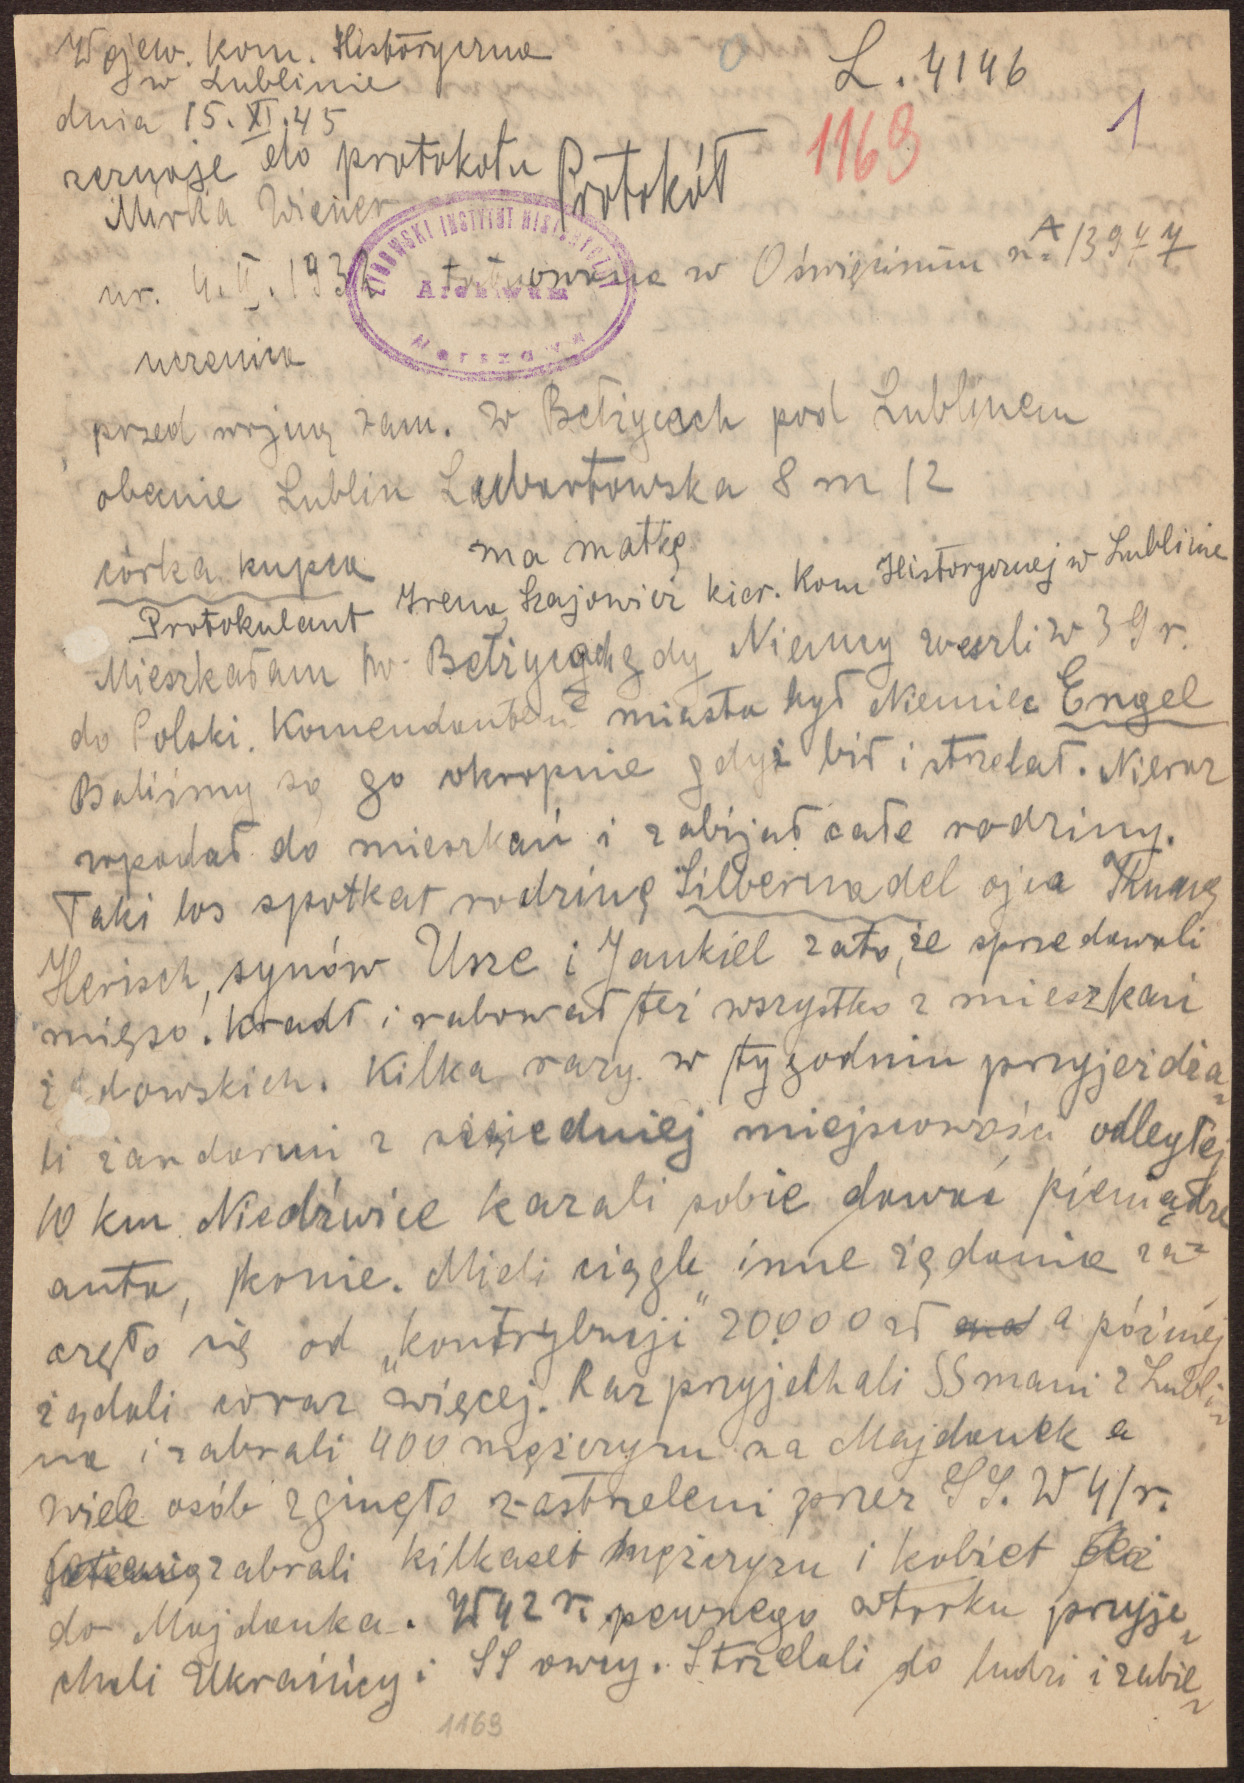 Wojew. Kom. Historyczna
w Lublinie
L. 4146
dnia 15.XI.45
1169
1
zeznaje do protokołu
Protokół
Mirka Wiener
ur. 4.II.193 tatuowana w Oświęcimiu nr A 13944
ŻYDOWSKI INSTYTUT HISTORYCZNY
Archiwum
Warszawa
uczenica
przed wojną zam. w Bełżycach pod Lublinem
obecnie Lublin Lubartowska 8 m 12
córka kupca ma matkę
Protokulant Irena Szajowicz kier. Kom Historycznej w Lublinie
Mieszkałam w Bełżycach gdy Niemcy weszli w 39 r.
do Polski. Komendantem miasta był Niemiec Engel
Baliśmy się go okropnie gdyż bił i strzelał. Nieraz
wpadał do mieszkań i zabijał całe rodziny.
Taki los spotkał rodzinę Silbernadel ojca
Herisch, synów Usze i Jankiel zato, że sprzedawali
mięso. Kradł i rabował też wszystko z mieszkań
żydowskich. Kilka razy w tygodniu przyjeżdża-
li żandarmi z sąsiedniej miejscowości odległej
10 km Niedźwice kazali sobie dawać pieniądze
auta, konie. Mieli ciągle inne żądania za-
częło się od „kontrybucji" 20000 zł a później
żądali coraz więcej. Raz przyjechali SSmani z Lubli-
na i zabrali 400 mężczyzn na Majdanek a
wiele osób zginęło zastrzeleni przez SS. W 41 r.
zabrali kilkaset mężczyzn i kobiet
do Majdanka. W 42 r. pewnego wtorku przyje-
chali Ukraińcy i SSowcy. Strzelali do ludzi i zabie-
1169